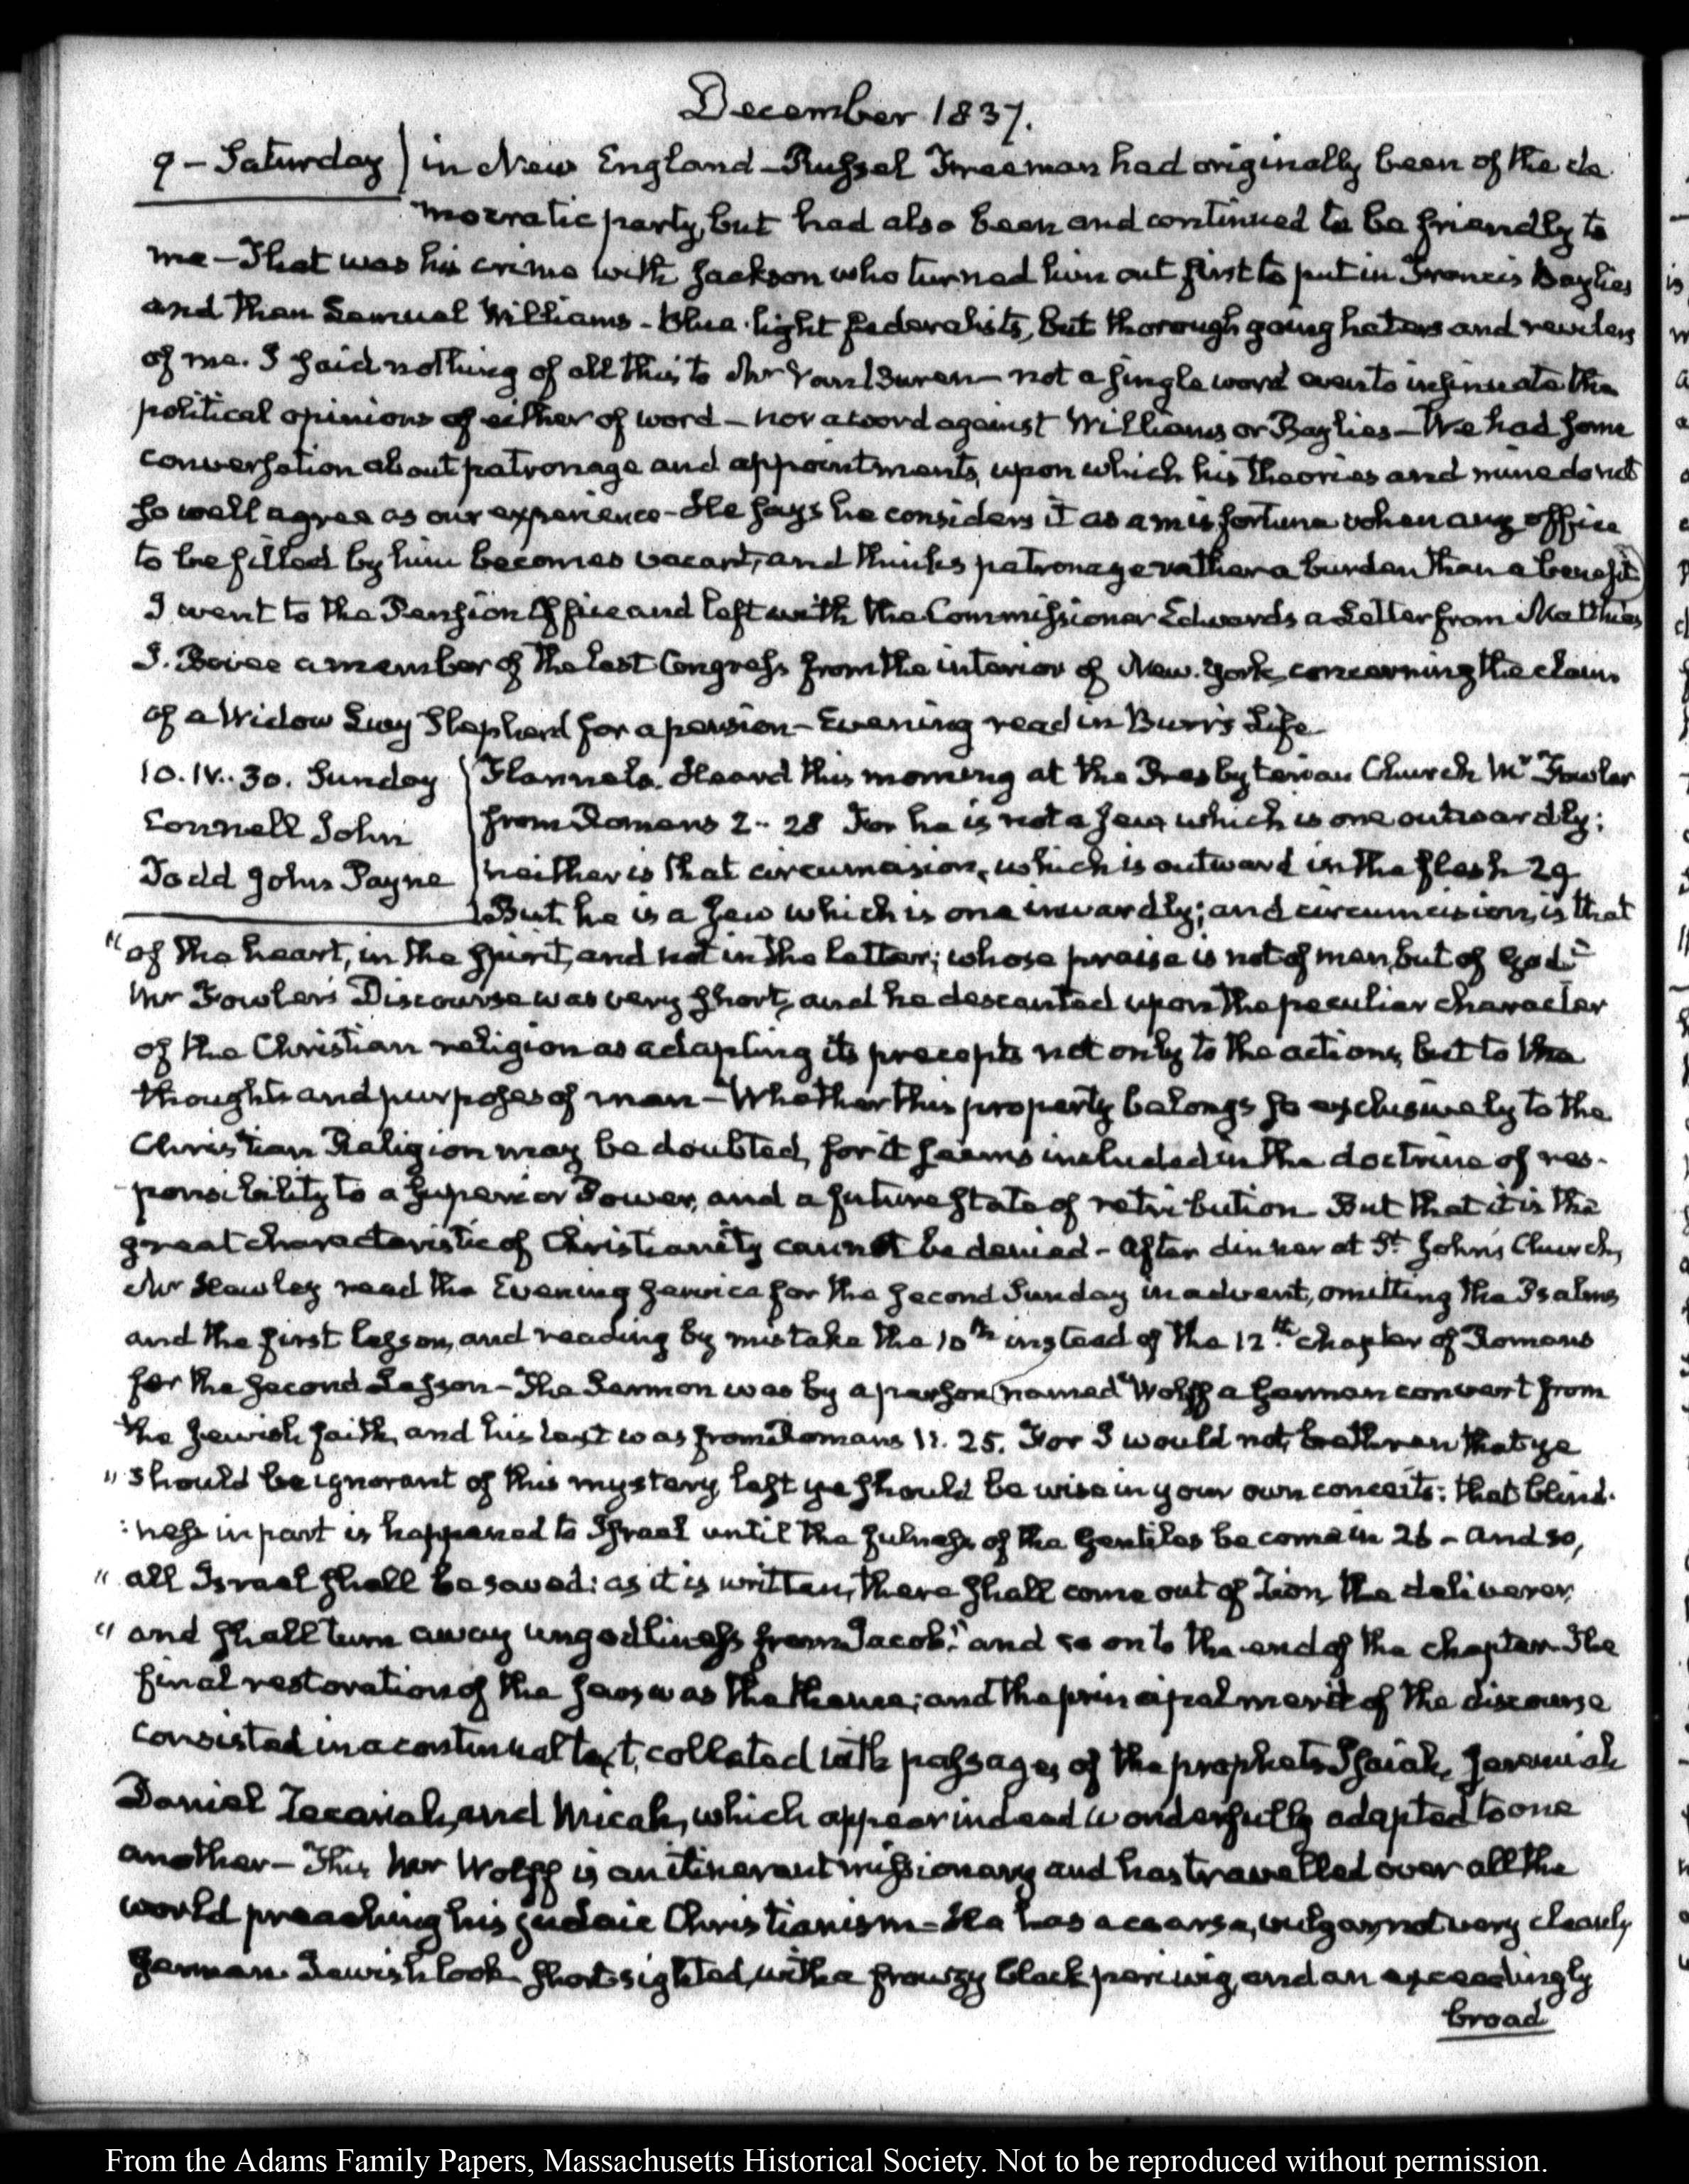 December 1837.
9 - Saturday) in New England - Russel Freeman had originally been of the de
mocratic party, but had also been and continued to be friendly to
me - That was his crime with Jackson who turned him out first to put in Francis Baylies
and then Lemuel Williams - Blue-light federalists, but thorough going haters and revilers
of me. I said nothing of all this to Mr Van Buren - not a single word even to insinuate the
political opinions of either of word - nor a word against Williams or Baylies - We had some
conversation about patronage and appointments, upon which his theories and mine do not
so well agree as our experience - He says he considers it as a misfortune when any office
to be filled by him becomes vacant, and thinks patronage rather a burden than a benefit)
I went to the Pension Office and left with the Commissioner Edwards a Letter from Matthias
J. Bovee a member of the last Congress from the interior of New-York, concerning the claim
of a Widow Lucy Shepherd for a pension - Evening read in Burr's Life
10. IV.. 30. Sunday
Connell John
Todd John Payne
Flannels. Heard this morning at the Presbyterian Church Mr Fowler
from Romans 2.. 28 For he is not a Jew, which is one outwardly;
neither is that circumcision, which is outward in the flesh 29
But he is a Jew which is one inwardly; and circumcision, is that
" of the heart, in the Spirit, and not in the letter; whose praise is not of men, but of God."
Mr Fowler's Discourse was very short, and he descanted upon the peculiar character
of the Christian religion as adapting its precepts not only to the actions, but to the
thoughts and purposes of man - Whether this property belongs so exclusively to the
Christian Religion may be doubted, for it seems included in the doctrine of res-
ponsibility to a Superior Power, and a future state of retribution But that it is the
great characteristic of Christianity cannot be denied - After dinner at St. John's Church,
Mr Hawley read the Evening service for the second Sunday in advent, omitting the Psalms
and the first lesson, and reading by mistake the 10th instead of the 12th. chapter of Romans
for the second Lesson - The Sermon was by a person named Wolff a German convert from
the Jewish faith, and his text was from Romans 11. 25. For I would not, brethren that ye
" should be ignorant of this mystery lest ye should be wise in your own conceits: that blind-
:ness in part is happened to Israel until the fulness of the Gentiles be come in 26 - and so,
" all Israel shall be saved: as it is written, there shall come out of Zion, the deliverer,
" and shall turn away ungodliness from Jacob," and so on to the end of the chapter. The
final restoration of the Jews was the theme; and the principal merit of the discourse
consisted in a continual text, collated with passages of the prophets Isaiah, Jeremiah
Daniel Zecariah, and Micah, which appear indeed wonderfully adapted to one
another - This Mr Wolff is an itinerant missionary and has travelled over all the
world preaching his Judaic Christianism - He has a coarse, vulgar, not very cleanly
German Jewish look short-sighted, with a frowzy black periwig, and an exceedingly
broad
From the Adams Family Papers, Massachusetts Historical Society. Not to be reproduced without permission.